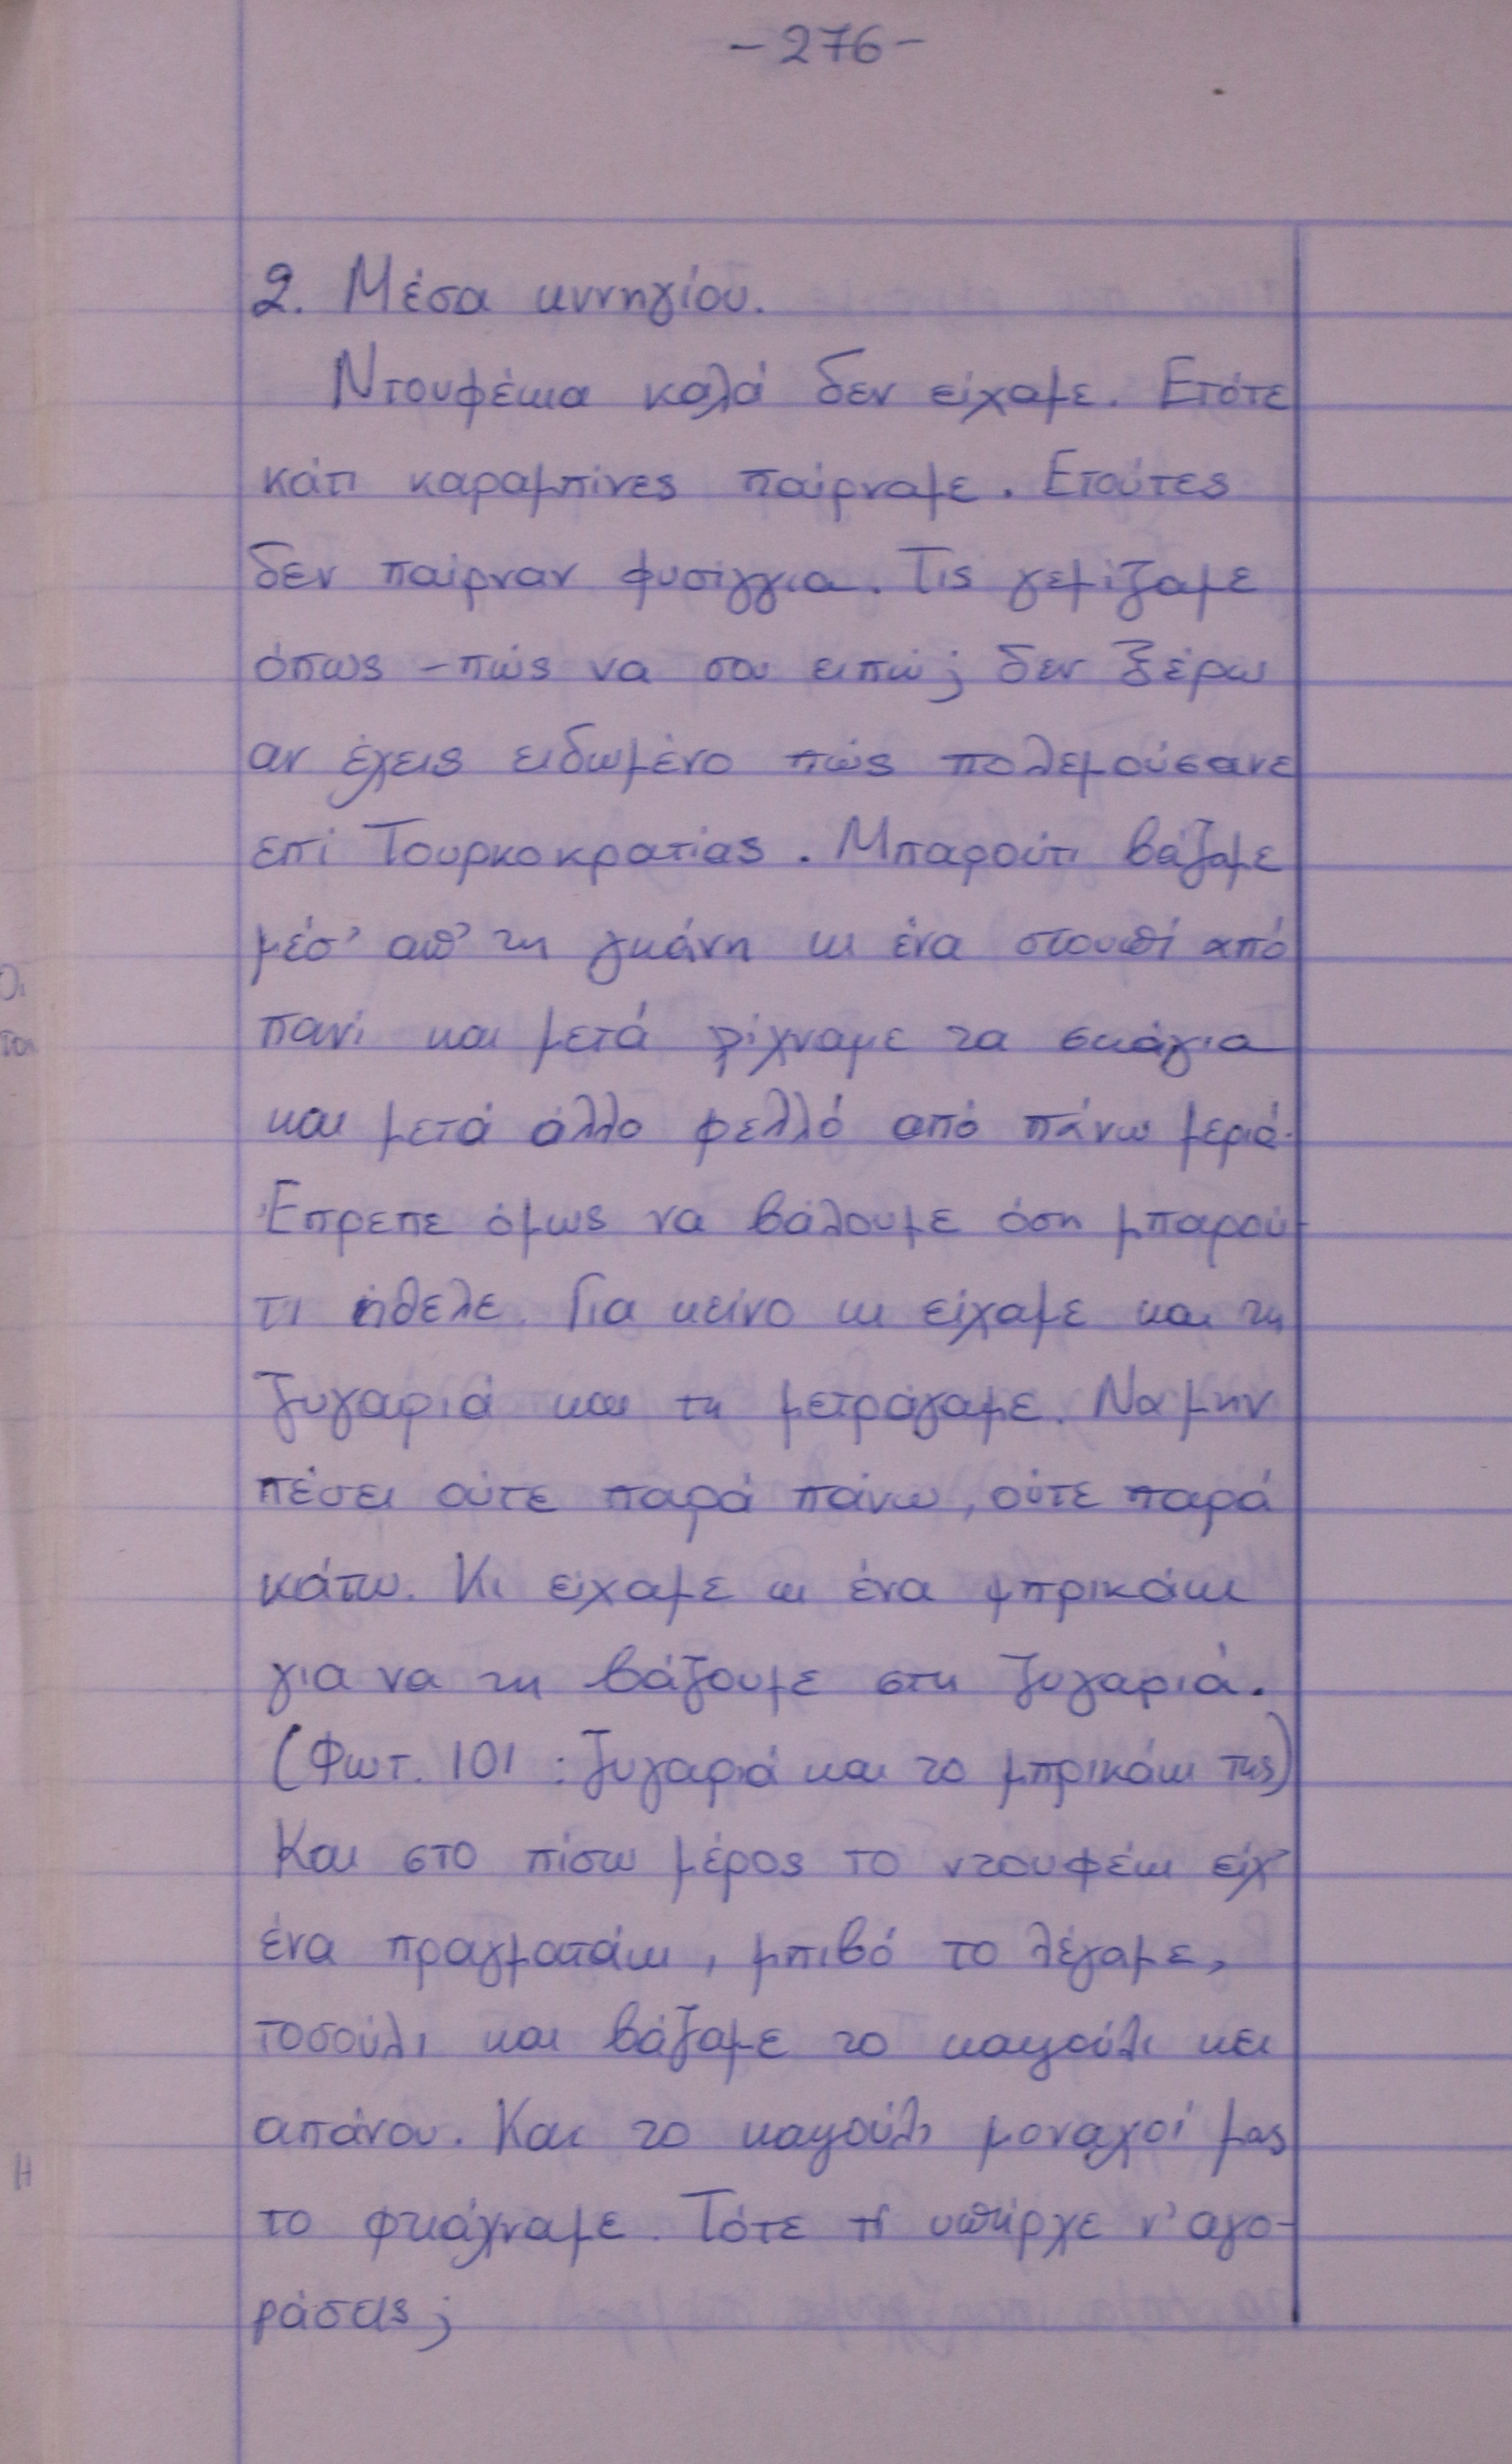 -276-
2. Μέσα κυνηγίου.
Ντουφέκια καλά δεν είχαμε. Ετότε
κάτι καραμπίνες παίρναμε. Ετούτες
δεν παίρναν φυσίγγια. Τις γεμίζαμε
όπως - πώς να σου ειπώ; δεν ξέρω
αν έχεις ειδωμένο πώς πολεμούσανε
επί Τουρκοκρατίας. Μπαρούτι βάζαμε
μέσ' απ' τη γκάνη κι ένα στουπί από
πανί και μετά ρίχναμε τα σκάγια
και μετά άλλο φελλό από πάνω μεριά.
Έπρεπε όμως να βάλουμε όση μπαρού-
τι ήθελε. Για κείνο κι είχαμε και τη
ζυγαριά και τη μετράγαμε. Να μην
πέσει ούτε παρά πάνω, ούτε παρά
κάτω. Κι είχαμε κι ένα μπρικάκι
για να τη βάζουμε στη ζυγαριά.
(Φωτ. 101 : ζυγαριά και το μπρικάκι της)
Και στο πίσω μέρος το ντουφέκι είχ'
ένα πραγματάκι, μπιβό το λέγαμε,
τοσούλι και βάζαμε το καψούλι κει
απάνου. Και το καψούλι μοναχοί μας
το φκιάχναμε. Τότε τί υπήρχε ν' αγο-
ράσεις;